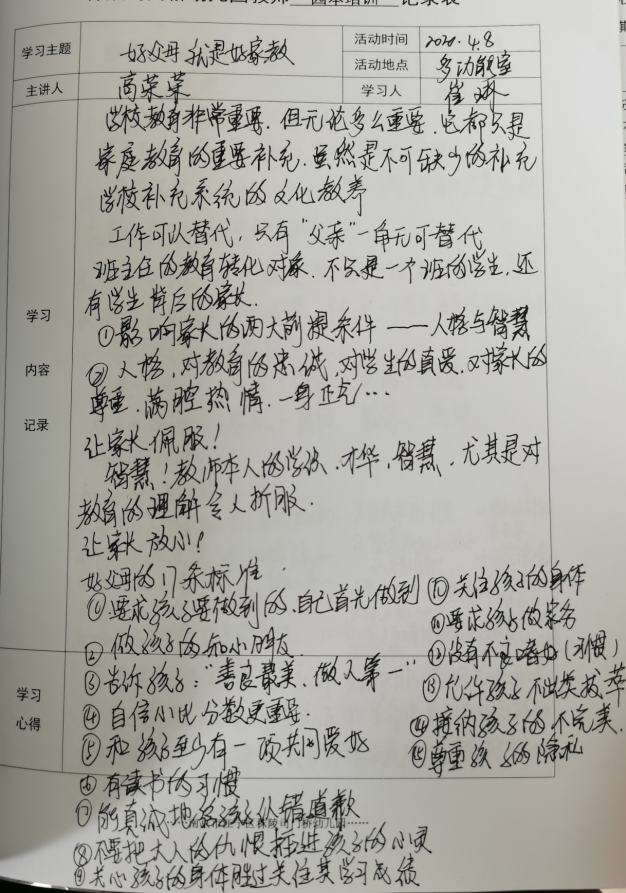 园本培训 记录表
学习主题 好父母 我是好家教 活动时间 2020.4.8
活动地点 多功能室
主讲人 高荣荣 学习人 崔
学校教育非常重要,但无论多么重要,它都只是
家庭教育的重要补充,虽然是不可缺少的补充
学校补充系统的文化教养
工作可以替代,只有“父亲”一角无可替代
班主任的教育转化对象,不只是一个班的学生,还
有学生背后的家长.
①影响家长的两大前提条件——人格与智慧
②人格,对教育的忠诚,对学生的真爱,对家长的
尊重,满腔热情,一身正气…
让家长佩服!
智慧!教师本人的学识,才华,智慧,尤其是对
教育的理解令人折服.
让家长放心!
学习
内容
记录
好父母的17条标准
①要求孩子要做到的,自己首先做到
②做孩子的知心朋友
③告诉孩子:“善良最美,做人第一”
④自信心比分数更重要.
⑤和孩子至少有一项共同爱好
⑥有读书的习惯
⑦能真诚地给孩子认错道歉
⑧不要把大人的仇恨插进孩子的心灵
⑨关心孩子的身体胜过关注其学习成绩
⑩关注孩子的身体
⑪要求孩子做家务
⑫没有不良嗜好(习惯)
⑬允许孩子不出类拔萃
⑭接纳孩子的不完美.
⑮尊重孩子的隐私
学习
心得